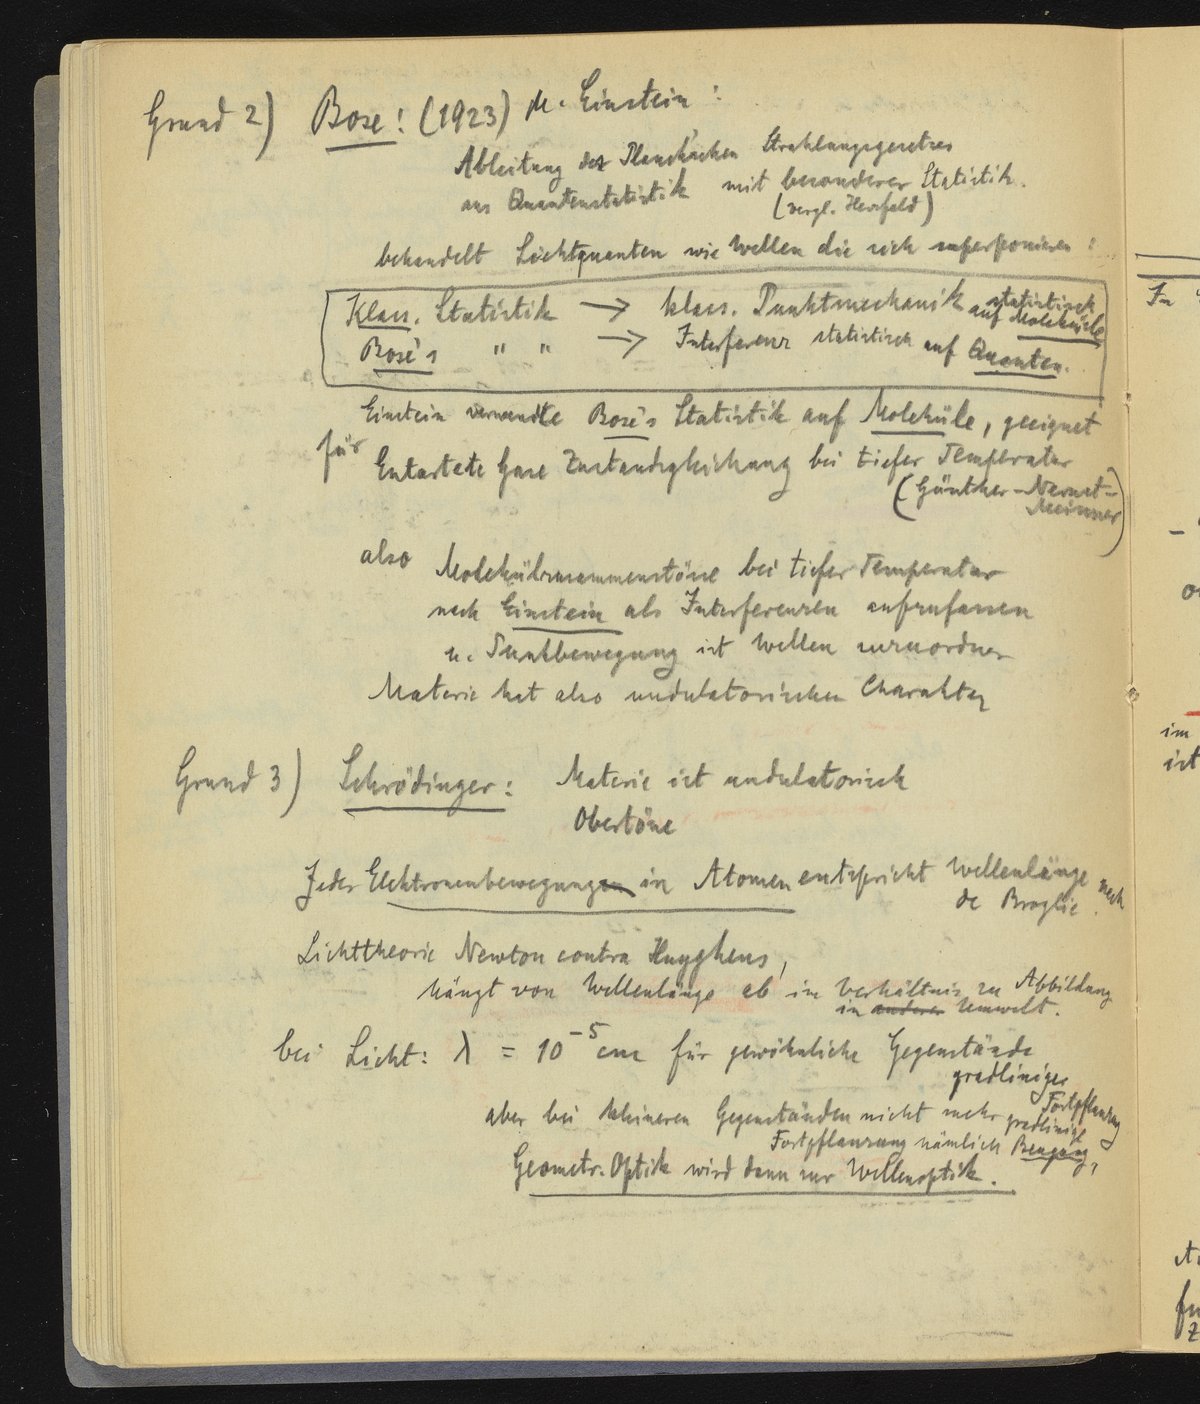 Grund 2) Bose: (1923) u. Einstein:
Ableitung des Planckschen Strahlungsgesetzes
aus Quantenstatistik mit besonderer Statistik.
(vergl. Herzfeld)
behandelt Lichtquanten wie Wellen die sich superponieren:
Klass. Statistik → klass. Punktmechanik statistisch
auf Moleküle
Bose's " " → Interferenz statistisch auf Quanten.
Einstein verwandte Bose's Statistik auf Moleküle, geeignet
für Entartete Gase Zustandsgleichung bei tiefer Temperatur
(Günther-Nernst-
Meissner)
also Molekülzusammenstösse bei tiefer Temperatur
nach Einstein als Interferenzen aufzufassen
u. Punktbewegung ist Wellen zuzuordnen
Materie hat also undulatorischen Charakter
Grund 3) Schrödinger: Materie ist undulatorisch
Obertöne
Jeder Elektronenbewegung in Atomen entspricht Wellenlänge nach
de Broglie.
Lichttheorie Newton contra Huyghens,
hängt von Wellenlänge ab in Verhältnis zu Abbildung
in anderer Umwelt.
bei Licht: λ = 10⁻⁵ cm für gewöhnliche Gegenstände
gradliniger
Fortpflanzung
aber bei kleineren Gegenständen nicht mehr gradlinige
Fortpflanzung nämlich Beugung,
Geometr. Optik wird dann zur Wellenoptik.
In
im
ist